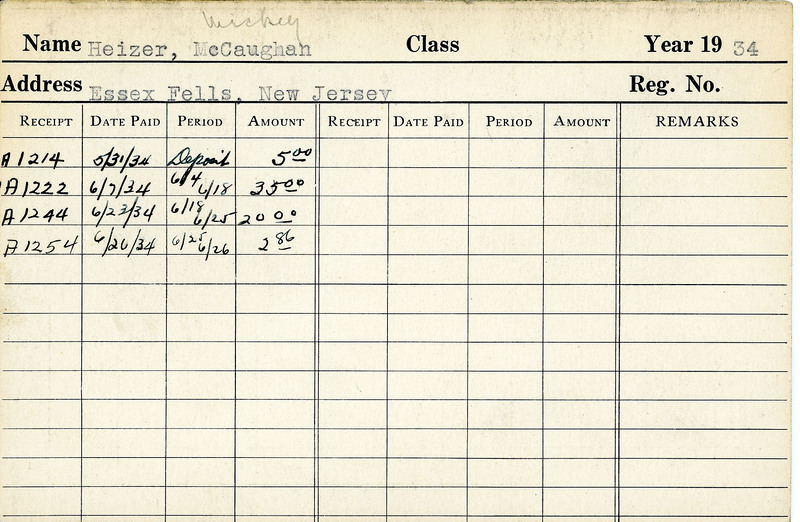 Mickey
Name Heizer, McCaughan Class Year 19 34
Address Essex Fells, New Jersey Reg. No.
RECEIPT DATE PAID PERIOD AMOUNT RECEIPT DATE PAID PERIOD AMOUNT REMARKS
A1214 5/31/34 Deposit 5 00
A1222 6/7/34 6/4 6/18 35 00
A1244 6/23/34 6/18 6/25 20 00
A1254 6/26/34 6/25 6/26 2 86